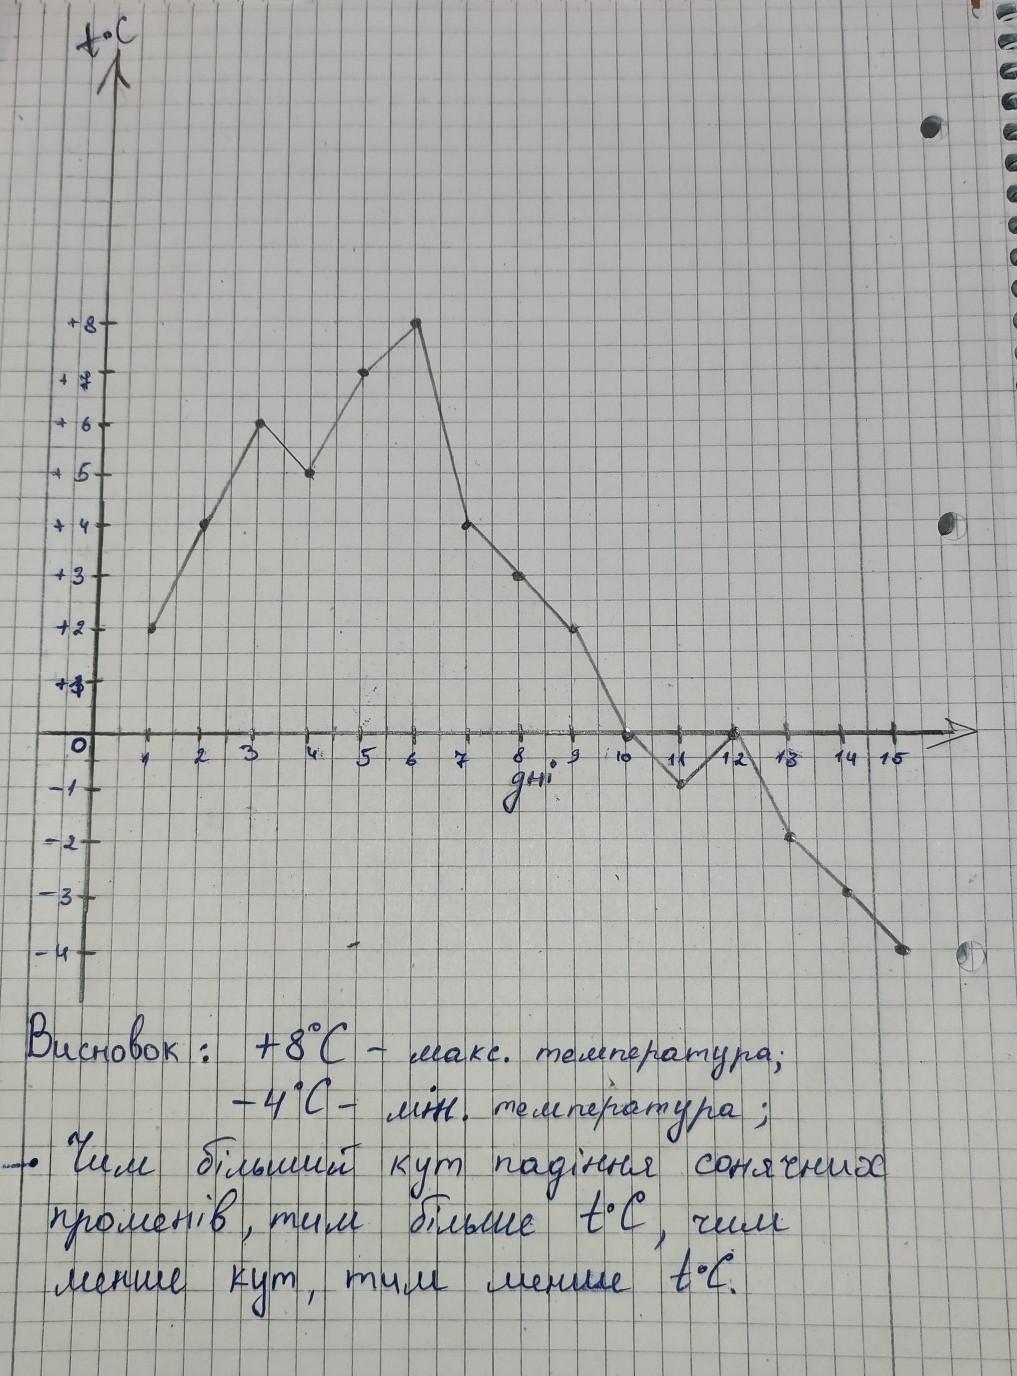 t°C
+8
+7
+6
+5
+4
+3
+2
+1
0 1 2 3 4 5 6 7 8 9 10 11 12 13 14 15
дні
-1
-2
-3
-4
Висновок: +8°C - макс. температура;
-4°C - мін. температура;
Чим більший кут падіння сонячних
променів, тим більше t°C, чим
менше кут, тим менше t°C.